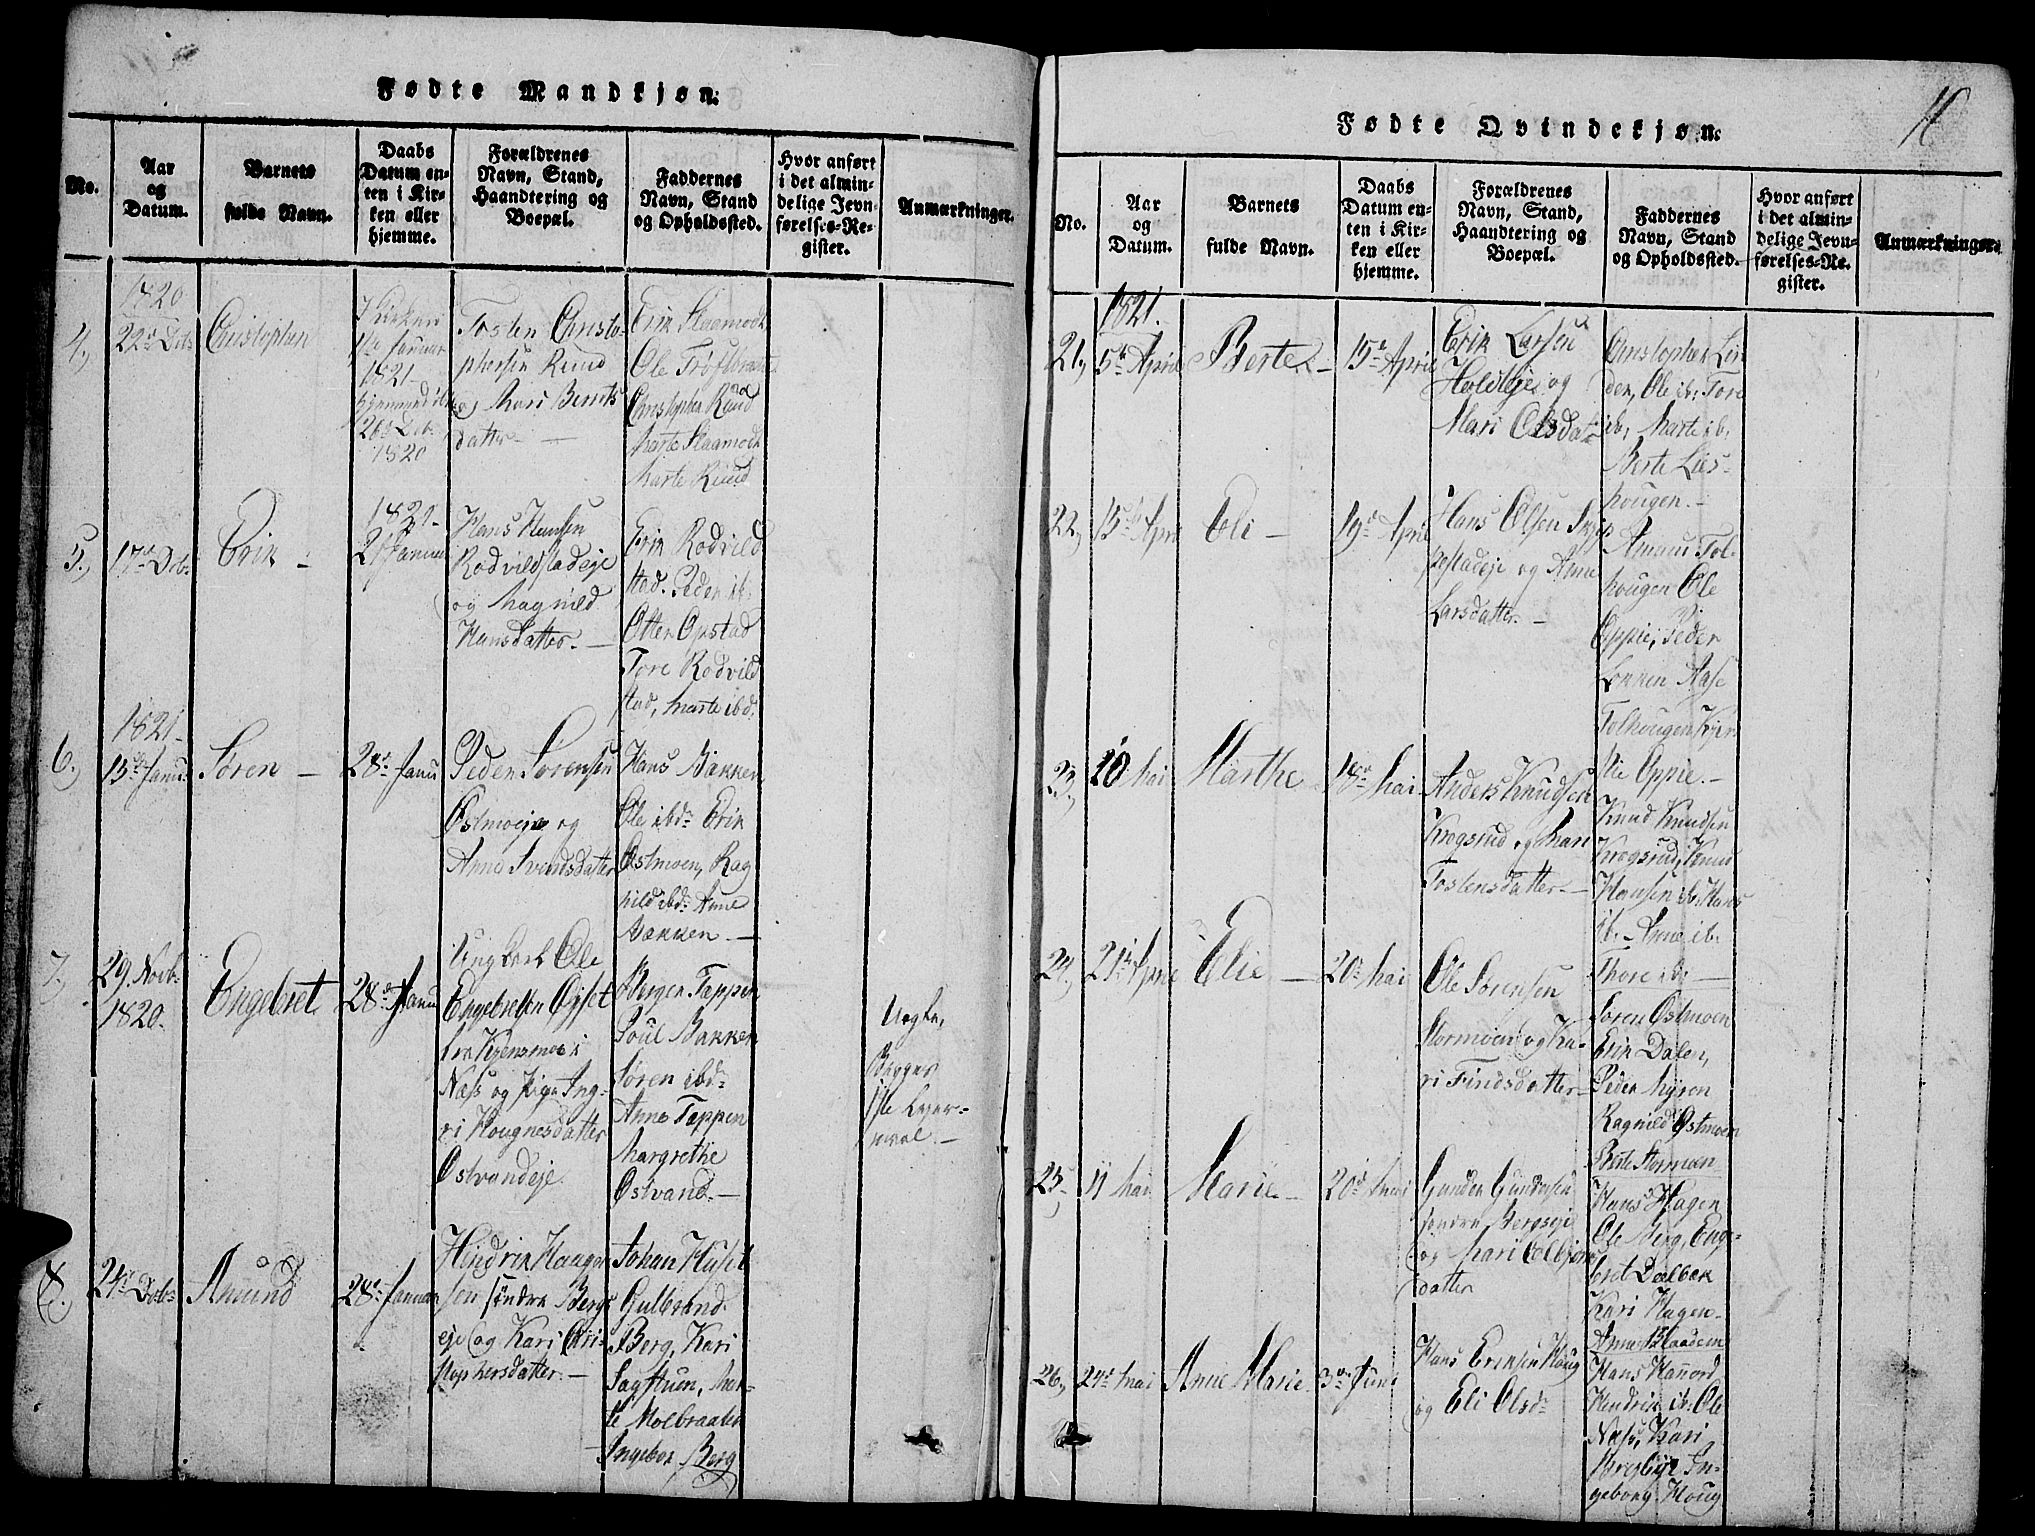 Fødte Mandkjøn.
No.
Aar
og
Datum.
Barnets
fulde Navn.
Daabs
Datum en-
ten i Kir-
ken eller
hjemme.
Forældrenes
Navn, Stand,
Haandtering og
Boepæl.
Faddernes
Navn, Stand
og Opholdssted.
Hvor anført
i det almin-
delige Jevn-
førelses-Re-
gister.
Anmærkninger.
4,
1820
22de Decb
Christopher
I Kirken
Januar
1821
26de Decb
1820
Tosten Christo-
phersen Ruud
og Mari Bernts
datter
Erik Slaamodt
Ole
Christopher Ruud
Marte Slaamodt
Marte Ruud
5,
17de Decb
Erik
1821
21 Januar
Hans Hansen
Rodvildstadeje
og Magnild
Hansdatter.
Erik Rodvild
stad. Peder ib.
Otter Opstad
Tore Rodvild
stad, Marte ibd.
6,
1821
13de Janu
Søren
28de Janu
Peder Sørensen
Ostmoeje og
Anne Svendsdatter
Hans Bakken
Ole ibd. Erik
Ostmoen, Rag
nild ibd. Anne
Bakken
7,
29 Novb
1820.
Engebret
28de Janu
Ung Karl Ole
Engebretsen Opset
fra Kjensmoe i
Næss og Pige Ing-
ri Hougnesdatter
Ostvandeje
Børger Tappen
Poul Bakken
Søren ibd.
Anne Tappen
Margrethe
Ostvand.
Uegte,
Begges
1ste Lejer-
maal.
8.
24de Decb
Amund
28de Januar
Hendrik Haagen
sen søndre Bergs
eje og Kari Chri-
stophersdatter.
Johan
Gulbrand
Berg, Kari
Sagstuen, Mar-
te Molbraaten
Ingebor Berg
Fødte Qvindekjøn.
16
No.
Aar
og
Datum.
Barnets
fulde Navn.
Daabs
Datum en-
ten i Kir-
ken eller
hjemme.
Forældrenes
Navn, Stand,
Haandtering og
Boepæl.
Faddernes
Navn, Stand
og Opholdssted.
Hvor anført
i det almin-
delige Jevn-
førelses-Re-
gister.
Anmærkninger.
21,
1821.
5te April
Berte
15de April
Erik Larsen
og
Mari Olsdat-
Christopher Lin
den, Ole ib. Tore
ib, Marte ib,
Berte Lies-
hougen.
22,
15de Apri
Eli
19de April
Hans Olsen Skjep
pestadeje og Anne
Larsdatter.
Amund Tol-
hougen Ole
Oppie, Peder
Løkken Aase
Tolhougen Kjer
stie Oppie.
23,
10 Mai
Marthe
18de Mai
Anders Knudsen
Krogsrud og Mari
Tostensdatter
Knud Knudsen
Krogsrud, Knud
Hansen ib. Hans
ib. Anne ib.
Thore ibd
24,
21de Aprie
Elie
20de Mai
Ole Sørensen
Stormoen og Ka-
ri Findsdatter
Søren Ostmoen
Erik Dalen,
Peder Myren
Ragnild Ostmoen
Berte Stormoen
25,
11 Mai
Marie
20de Mai
Gunder Gundersen
søndre Bergseje
og Mari Colbjørns
datter
Hans Hagen
Ole Berg, Enge-
bret Dælbæk
Kari Hagen
Anne Blaadem
26,
24de Mai
Anne Marie
3de Juni
Hans Eriksen Houg
og Eli Olsd.
Hans Hanord
Hendrik ib. Ole
Næss, Kari
In-
geborg Houg